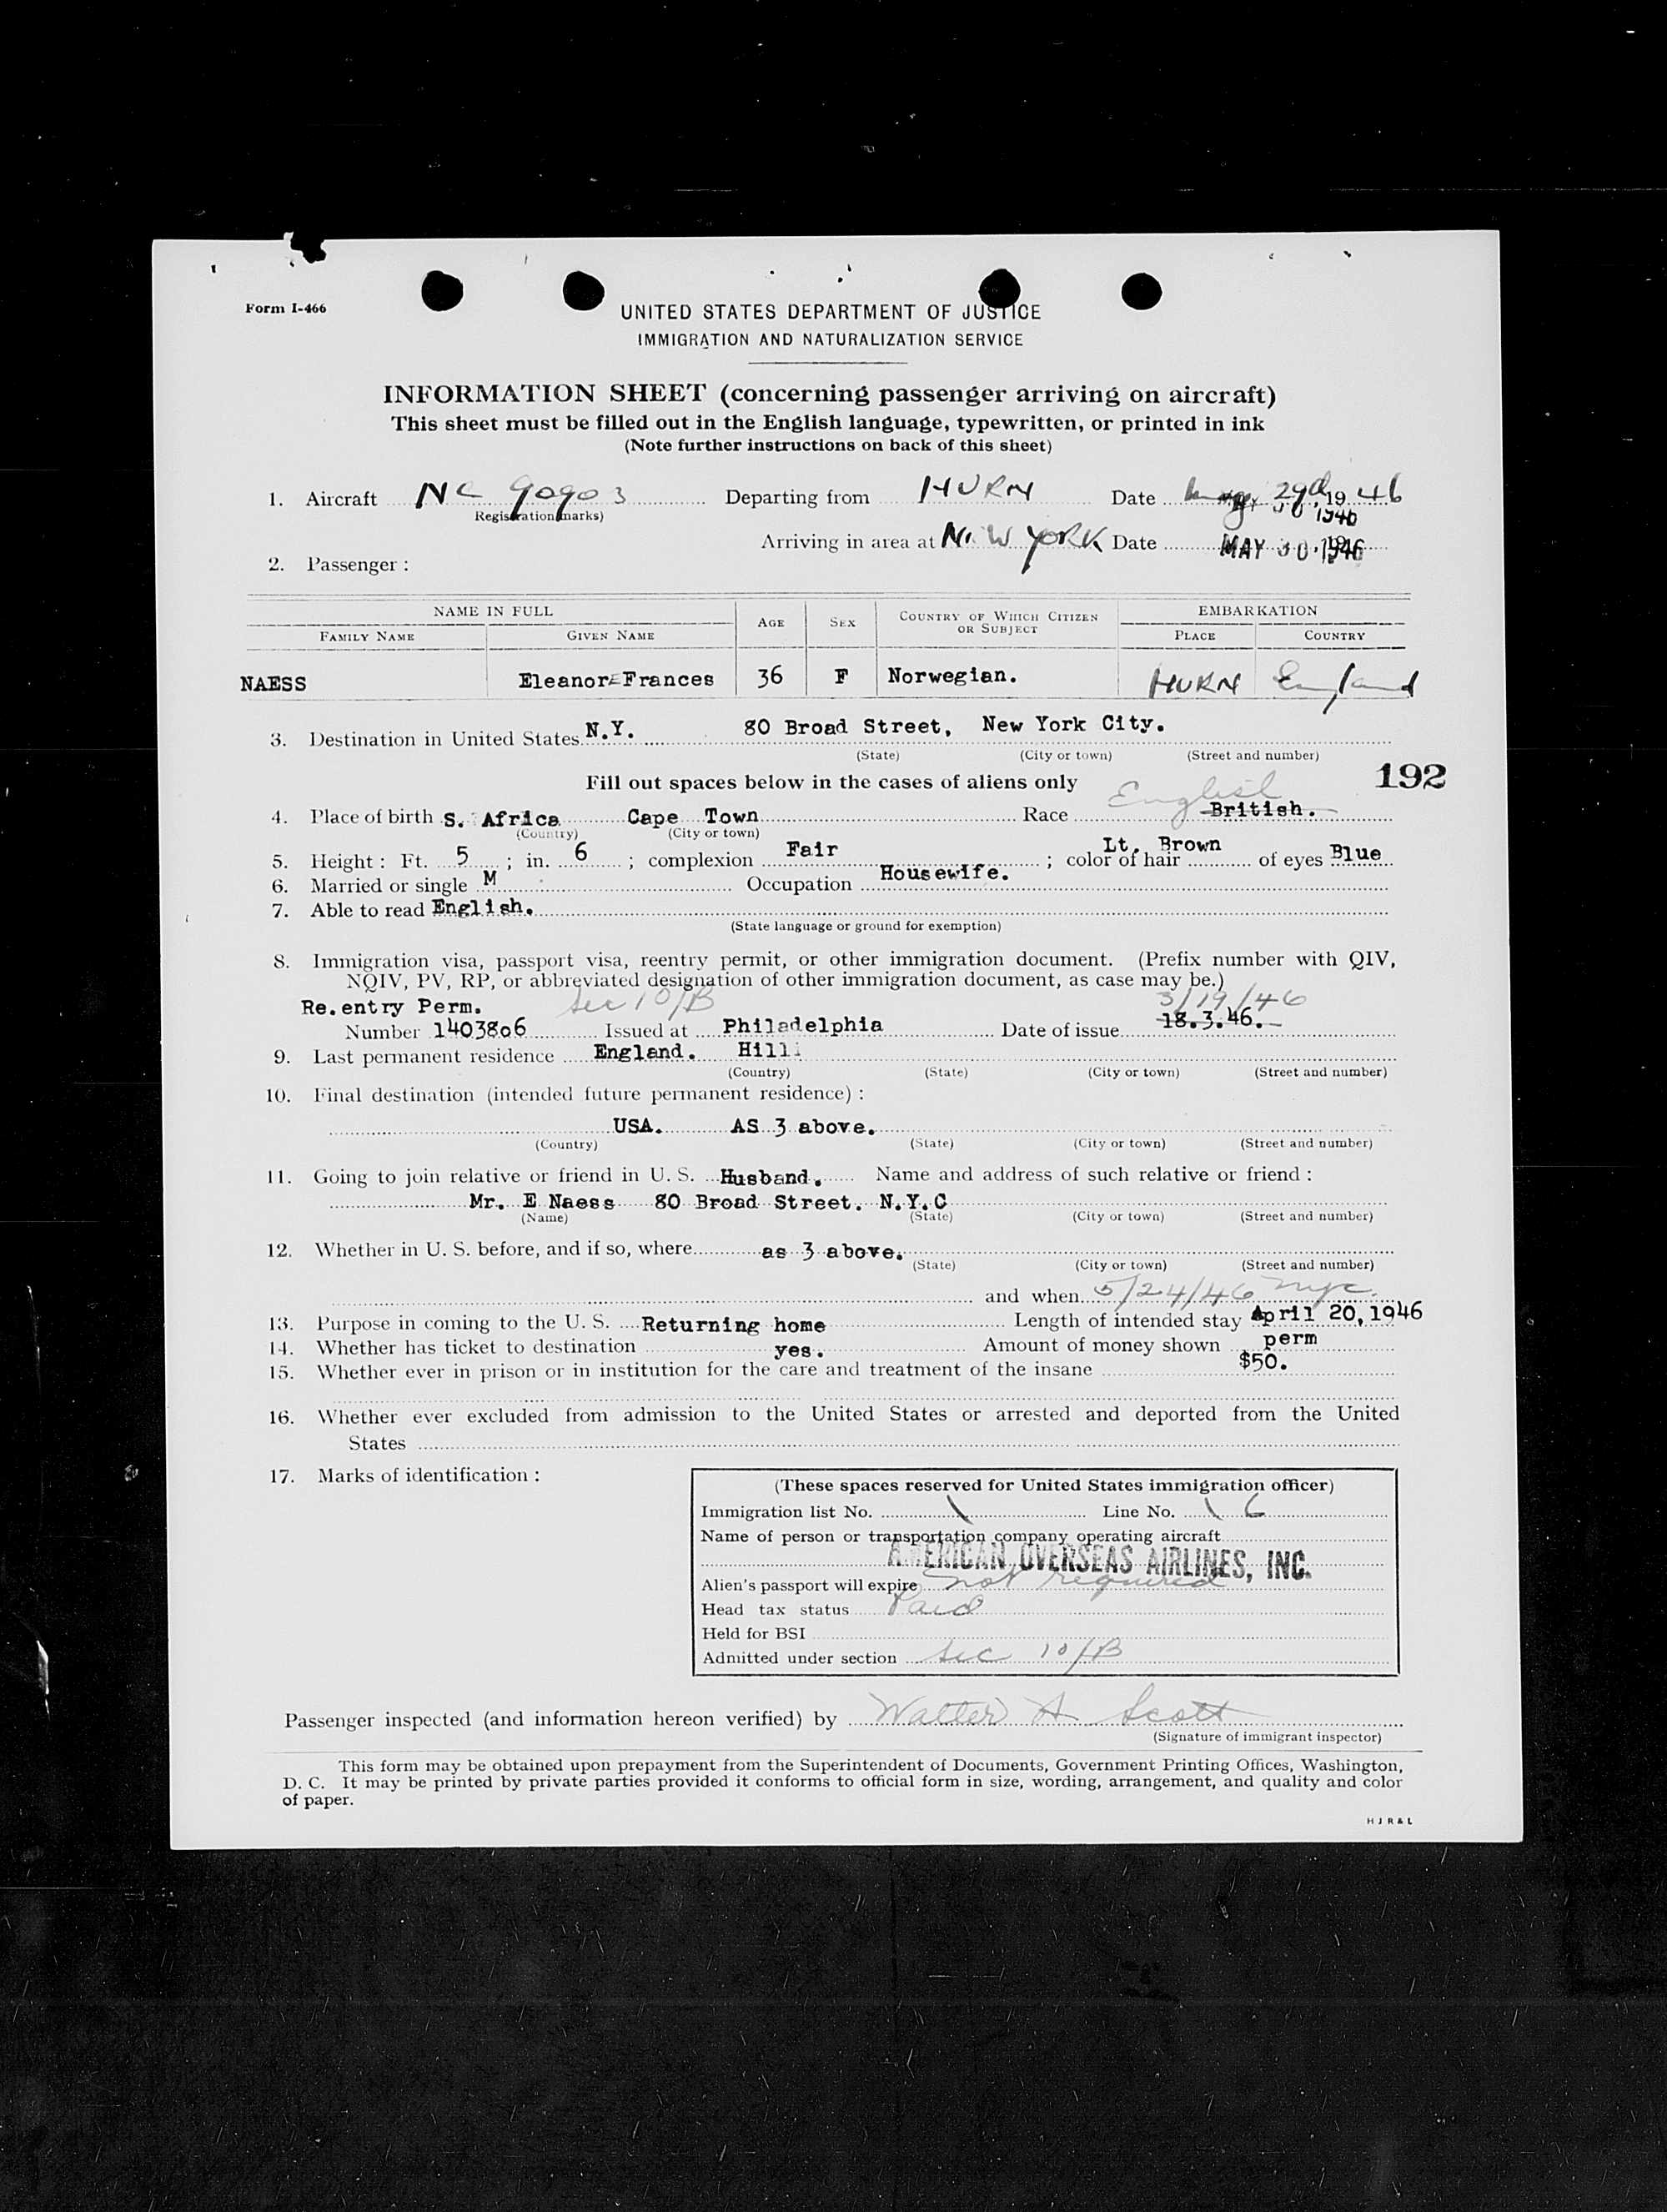 Form I-466
UNITED STATES DEPARTMENT OF JUSTICE
IMMIGRATION AND NATURALIZATION SERVICE
INFORMATION SHEET (concerning passenger arriving on aircraft)
This sheet must be filled out in the English language, typewritten, or printed in ink
(Note further instructions on back of this sheet)
1. Aircraft NC 90903 Departing from HURN Date 29th 1946
Registration marks)
Arriving in area at New YORK Date MAY 30 1946
2. Passenger :
NAME IN FULL AGE SEX COUNTRY OF WHICH CITIZEN OR SUBJECT EMBARKATION
FAMILY NAME GIVEN NAME PLACE COUNTRY
NAESS Eleanor Frances 36 F Norwegian. HURN England
3. Destination in United States N.Y. 80 Broad Street, New York City.
(State) (City or town) (Street and number)
Fill out spaces below in the cases of aliens only 192
English
4. Place of birth S. Africa Cape Town Race British.
(Country) (City or town)
5. Height : Ft. 5 ; in. 6 ; complexion Fair ; color of hair Lt. Brown of eyes Blue
6. Married or single M Occupation Housewife.
7. Able to read English.
(State language or ground for exemption)
8. Immigration visa, passport visa, reentry permit, or other immigration document. (Prefix number with QIV,
NQIV, PV, RP, or abbreviated designation of other immigration document, as case may be.)
Re.entry Perm. Sec 10/B 3/19/46
Number 1403806 Issued at Philadelphia Date of issue 18.3.46.
9. Last permanent residence England. Hill
(Country) (State) (City or town) (Street and number)
10. Final destination (intended future permanent residence) :
USA. AS 3 above.
(Country) (State) (City or town) (Street and number)
11. Going to join relative or friend in U. S. Husband. Name and address of such relative or friend :
Mr. E Naess 80 Broad Street. N.Y.C
(Name) (State) (City or town) (Street and number)
12. Whether in U. S. before, and if so, where as 3 above.
(State) (City or town) (Street and number)
and when 5/24/46 nyc.
13. Purpose in coming to the U. S. Returning home Length of intended stay April 20, 1946
14. Whether has ticket to destination yes. Amount of money shown perm
15. Whether ever in prison or in institution for the care and treatment of the insane $50.
16. Whether ever excluded from admission to the United States or arrested and deported from the United
States
17. Marks of identification :
(These spaces reserved for United States immigration officer)
Immigration list No. 1 Line No. 6
Name of person or transportation company operating aircraft
AMERICAN OVERSEAS AIRLINES, INC.
Alien's passport will expire not required
Head tax status Paid
Held for BSI
Admitted under section Sec 10/B
Passenger inspected (and information hereon verified) by Walter A Scott
(Signature of immigrant inspector)
This form may be obtained upon prepayment from the Superintendent of Documents, Government Printing Offices, Washington,
D. C. It may be printed by private parties provided it conforms to official form in size, wording, arrangement, and quality and color
of paper.
H J R & L